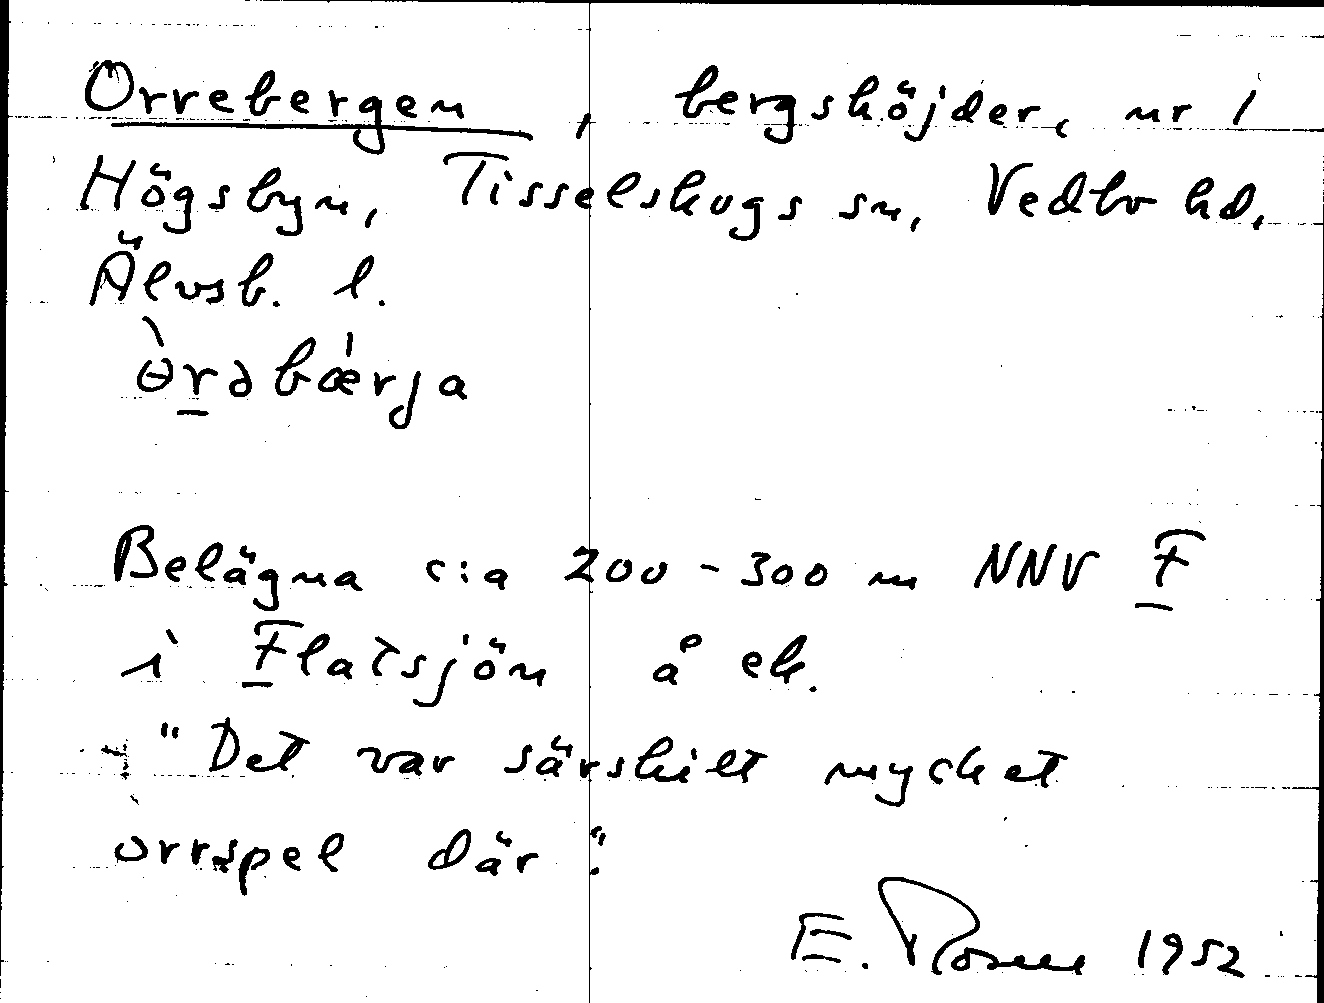 Orrebergen, bergshöjder, nr 1
Högsbyn, Tisselskogs sn, Vedbo hd,
Älvsb. l.
ɵ̀rəbæ̀rja
Belägna c:a 200-300 m NNV F
i Flatsjön å ek.
"Det var särskilt mycket
orrspel där".
E. Rosell 1952